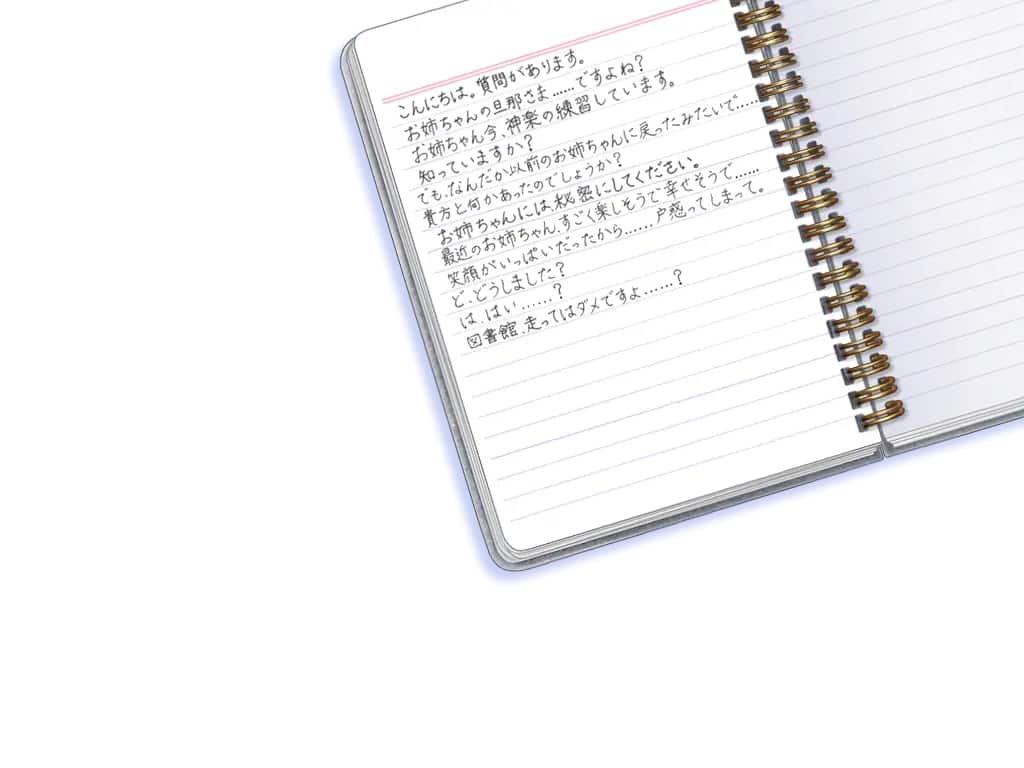 こんにちは。質問があります。
お姉ちゃんの旦那さま……ですよね？
お姉ちゃん今、神楽の練習しています。
知っていますか？
でも、なんだか以前のお姉ちゃんに戻ったみたいで……
貴方と何かあったのでしょうか？
お姉ちゃんには、秘密にしてください。
最近のお姉ちゃん、すごく楽しそうで幸せそうで……
笑顔がいっぱいだったから……戸惑ってしまって。
ど、どうしました？
は、はい……？
図書館、走ってはダメですよ……？